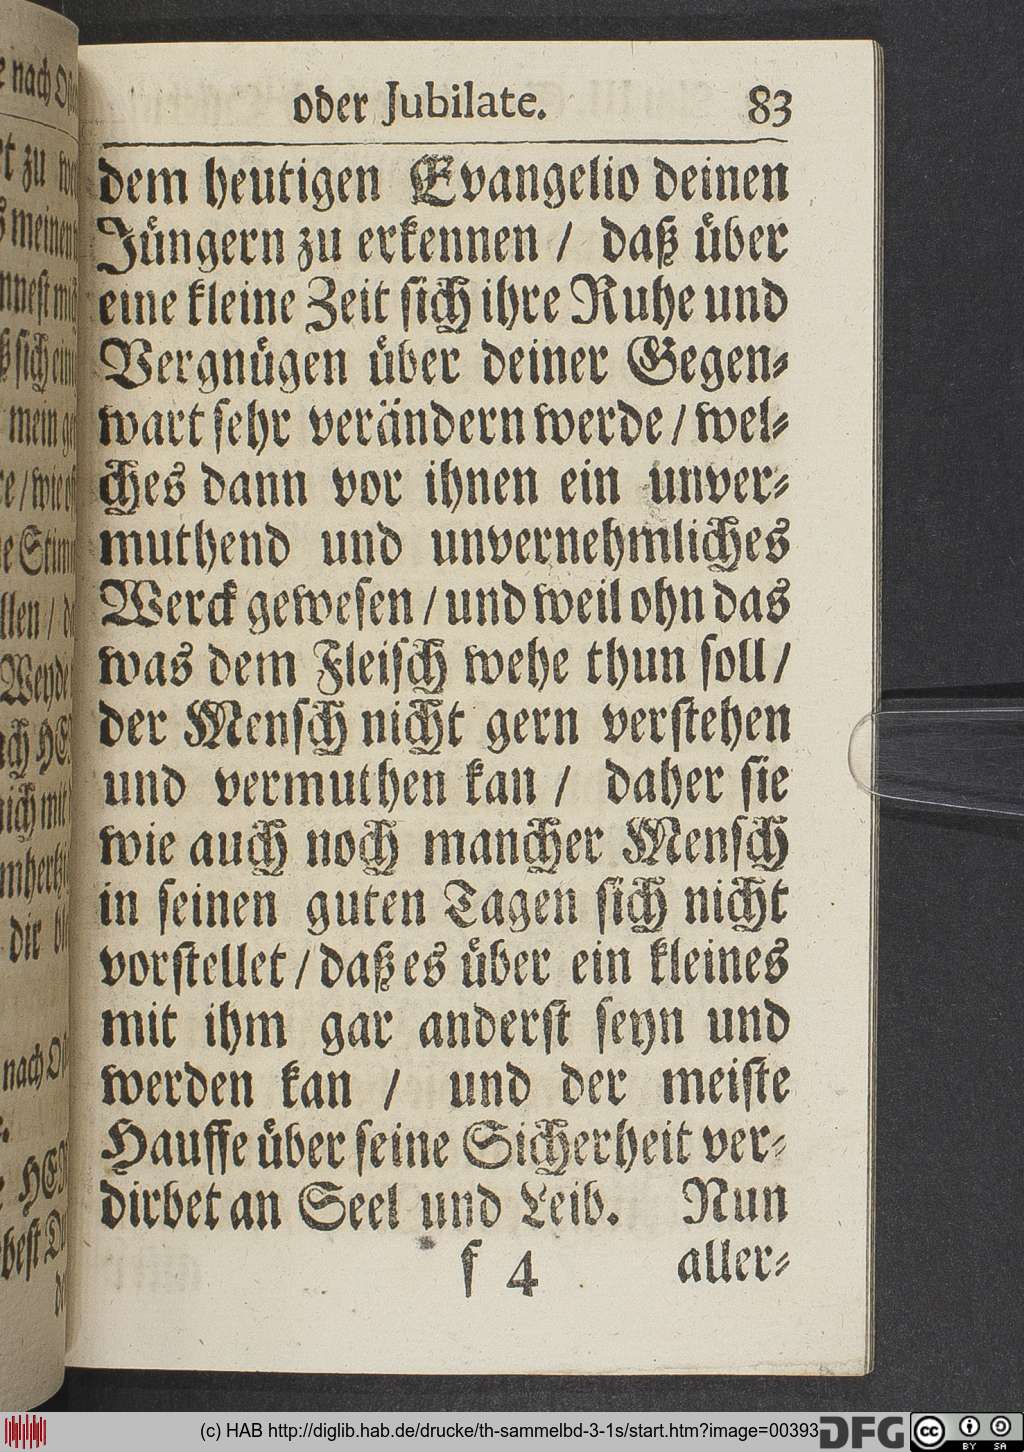 oder Jubilate. 83
dem heutigen Evangelio deinen
Jüngern zu erkennen / daß über
eine kleine Zeit sich ihre Ruhe und
Vergnügen über deiner Gegen-
wart sehr verändern werde / wel-
ches dann vor ihnen ein unver-
muthend und unvernehmliches
Werck gewesen / und weil ohn das
was dem Fleisch wehe thun soll /
der Mensch nicht gern verstehen
und vermuthen kan / daher sie
wie auch noch mancher Mensch
in seinen guten Tagen sich nicht
vorstellet / daß es über ein kleines
mit ihm gar anderst seyn und
werden kan / und der meiste
Hauffe über seine Sicherheit ver-
dirbet an Seel und Leib. Nun
f 4 aller-
(c) HAB http://diglib.hab.de/drucke/th-sammelbd-3-1s/start.htm?image=00393
DFG
cc BY SA